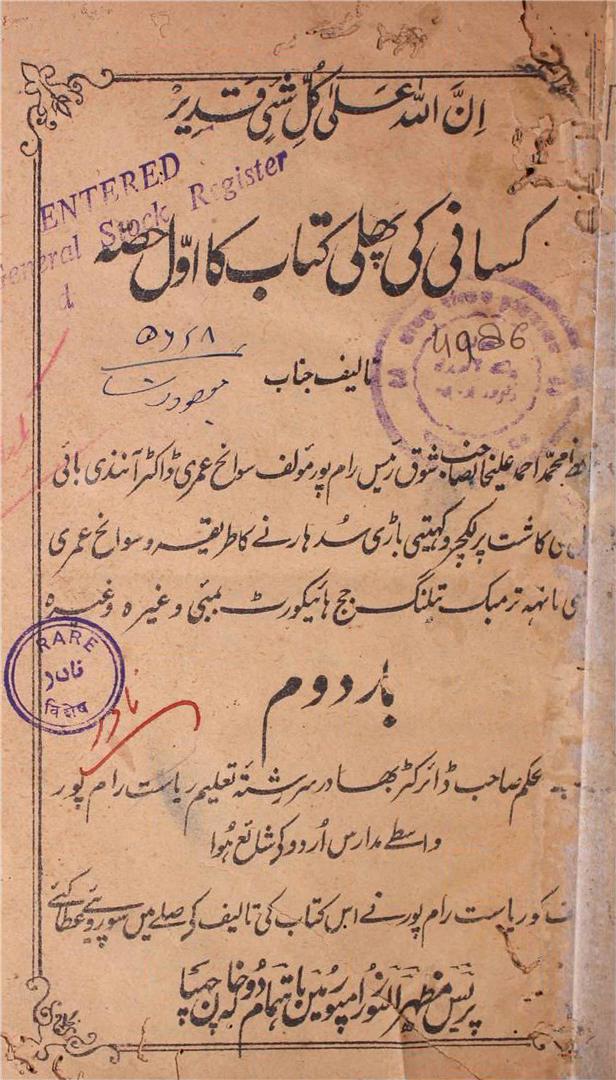 اِنَّ اللہَ عَلیٰ کُلِّ شَیءٍ قَدِیْر
ENTERED
General Stock Register
d
کسانی کی پھلی کتاب کا اوّل حصہ
۵۶۲۸
4986
تالیف جناب
محمد احمد علیخانصاحب شوق رئیس رام پور مؤلف سوانح عمری ڈاکٹر آنندی بائی
کاشت پر لکچر و کھیتی باڑی سُدھارنے کا طریقہ و سوانح عمری
ترمبک تیلنگ جج ہائیکورٹ بمبئی وغیرہ وغیرہ
RARE
نادر
विशेष
نادر
بار دوم
حکم صاحب ڈائرکٹر بہادر سررشتۂ تعلیم ریاست رام پور
واسطے مدارس اُردو کی شائع ہُوا
کو ریاست رام پور نے اس کتاب کی تالیف کی صلے میں سو روپئے عطا کئے
پریس مظہر النور رامپور میں باہتمام چھپا